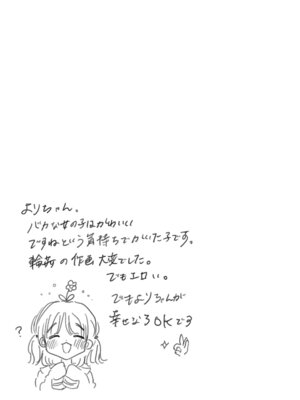 よりちゃん。
バカな女の子はかわいい
ですねという気持ちでかいた子です。
輪姦の作画大変でした。
でもエロい。
できよりちゃんが
幸せならOKです
?